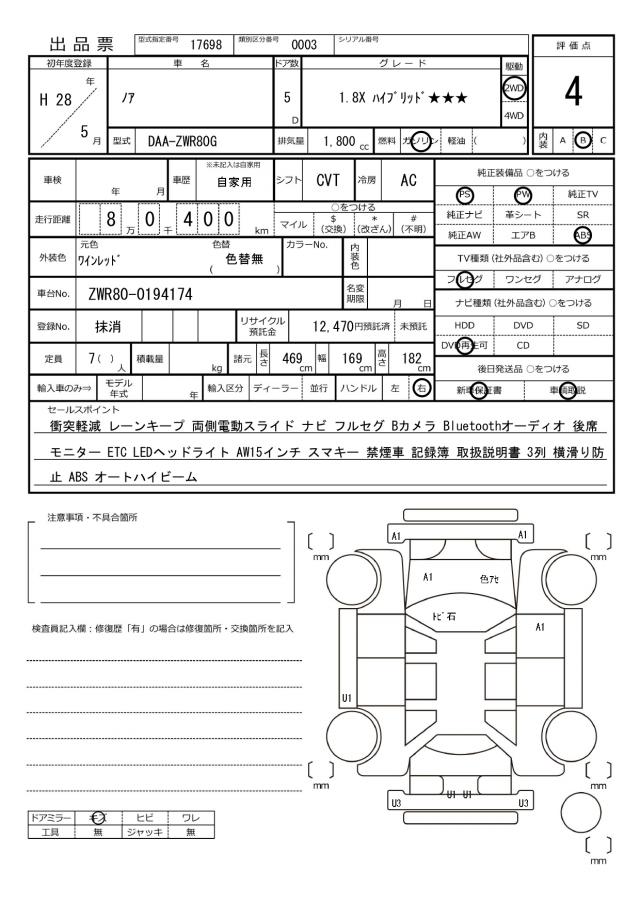 出品票
型式指定番号 17698 類別区分番号 0003 シリアル番号
評価点
4
初年度登録 車名 ドア数 グレード 駆動
H 28 年 5 月 ノア 5 D 1.8X ハイブリッド★★★ 2WD 4WD
型式 DAA-ZWR80G 排気量 1,800 cc 燃料 ガソリン 軽油 ( )
内装 A B C
車検 年 月 車歴 ※未記入は自家用 自家用 シフト CVT 冷房 AC
走行距離 8 万 0 千 4 0 0 km
○をつける
マイル $(交換) *(改ざん) #(不明)
外装色 元色 ワインレッド 色替 ( 色替無 ) カラーNo. 内装色
車台No. ZWR80-0194174 名変期限 月 日
登録No. 抹消 リサイクル預託金 12,470円預託済 未預託
定員 7( ) 人 積載量 kg 諸元 長さ 469 cm 幅 169 cm 高さ 182 cm
輸入車のみ⇒ モデル年式 年 輸入区分 ディーラー 並行 ハンドル 左 右
純正装備品 ○をつける
PS PW 純正TV
純正ナビ 革シート SR
純正AW エアB ABS
TV種類 (社外品含む) ○をつける
フルセグ ワンセグ アナログ
ナビ種類 (社外品含む) ○をつける
HDD DVD SD
DVD再生可 CD
後日発送品 ○をつける
新車保証書 車輌取説
セールスポイント
衝突軽減 レーンキープ 両側電動スライド ナビ フルセグ Bカメラ Bluetoothオーディオ 後席
モニター ETC LEDヘッドライト AW15インチ スマキー 禁煙車 記録簿 取扱説明書 3列 横滑り防
止 ABS オートハイビーム
注意事項・不具合箇所
検査員記入欄：修復歴「有」の場合は修復箇所・交換箇所を記入
A1 A1
[ ] mm [ ] mm
A1 色アセ
トビ石
A1
U1
[ ] mm [ ] mm
U1 U1
U3 U3
[ ] mm
ドアミラー キズ ヒビ ワレ
工具 無 ジャッキ 無